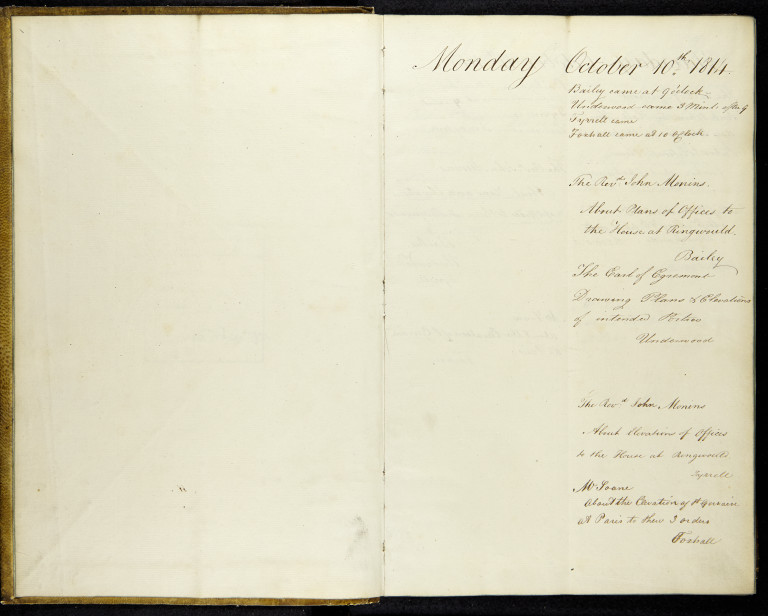 Monday October 10th. 1814.
Bailey came at 9 oclock
Underwood came 3 Mint. after 9
Tyrrell came
Foxhall came at 10 oClock.
The Revd. John Monins.
About Plans of Offices to
the House at Ringwould.
Bailey
The Earl of Egremont
Drawing Plans & Elevations
of intended Portico
Underwood
The Revd. John Monins
About Elevations of Offices
to the House at Ringwould
Tyrrell
Mr Soane
About the Elevation of St Gervaise
at Paris to thew 3 orders
Foxhall